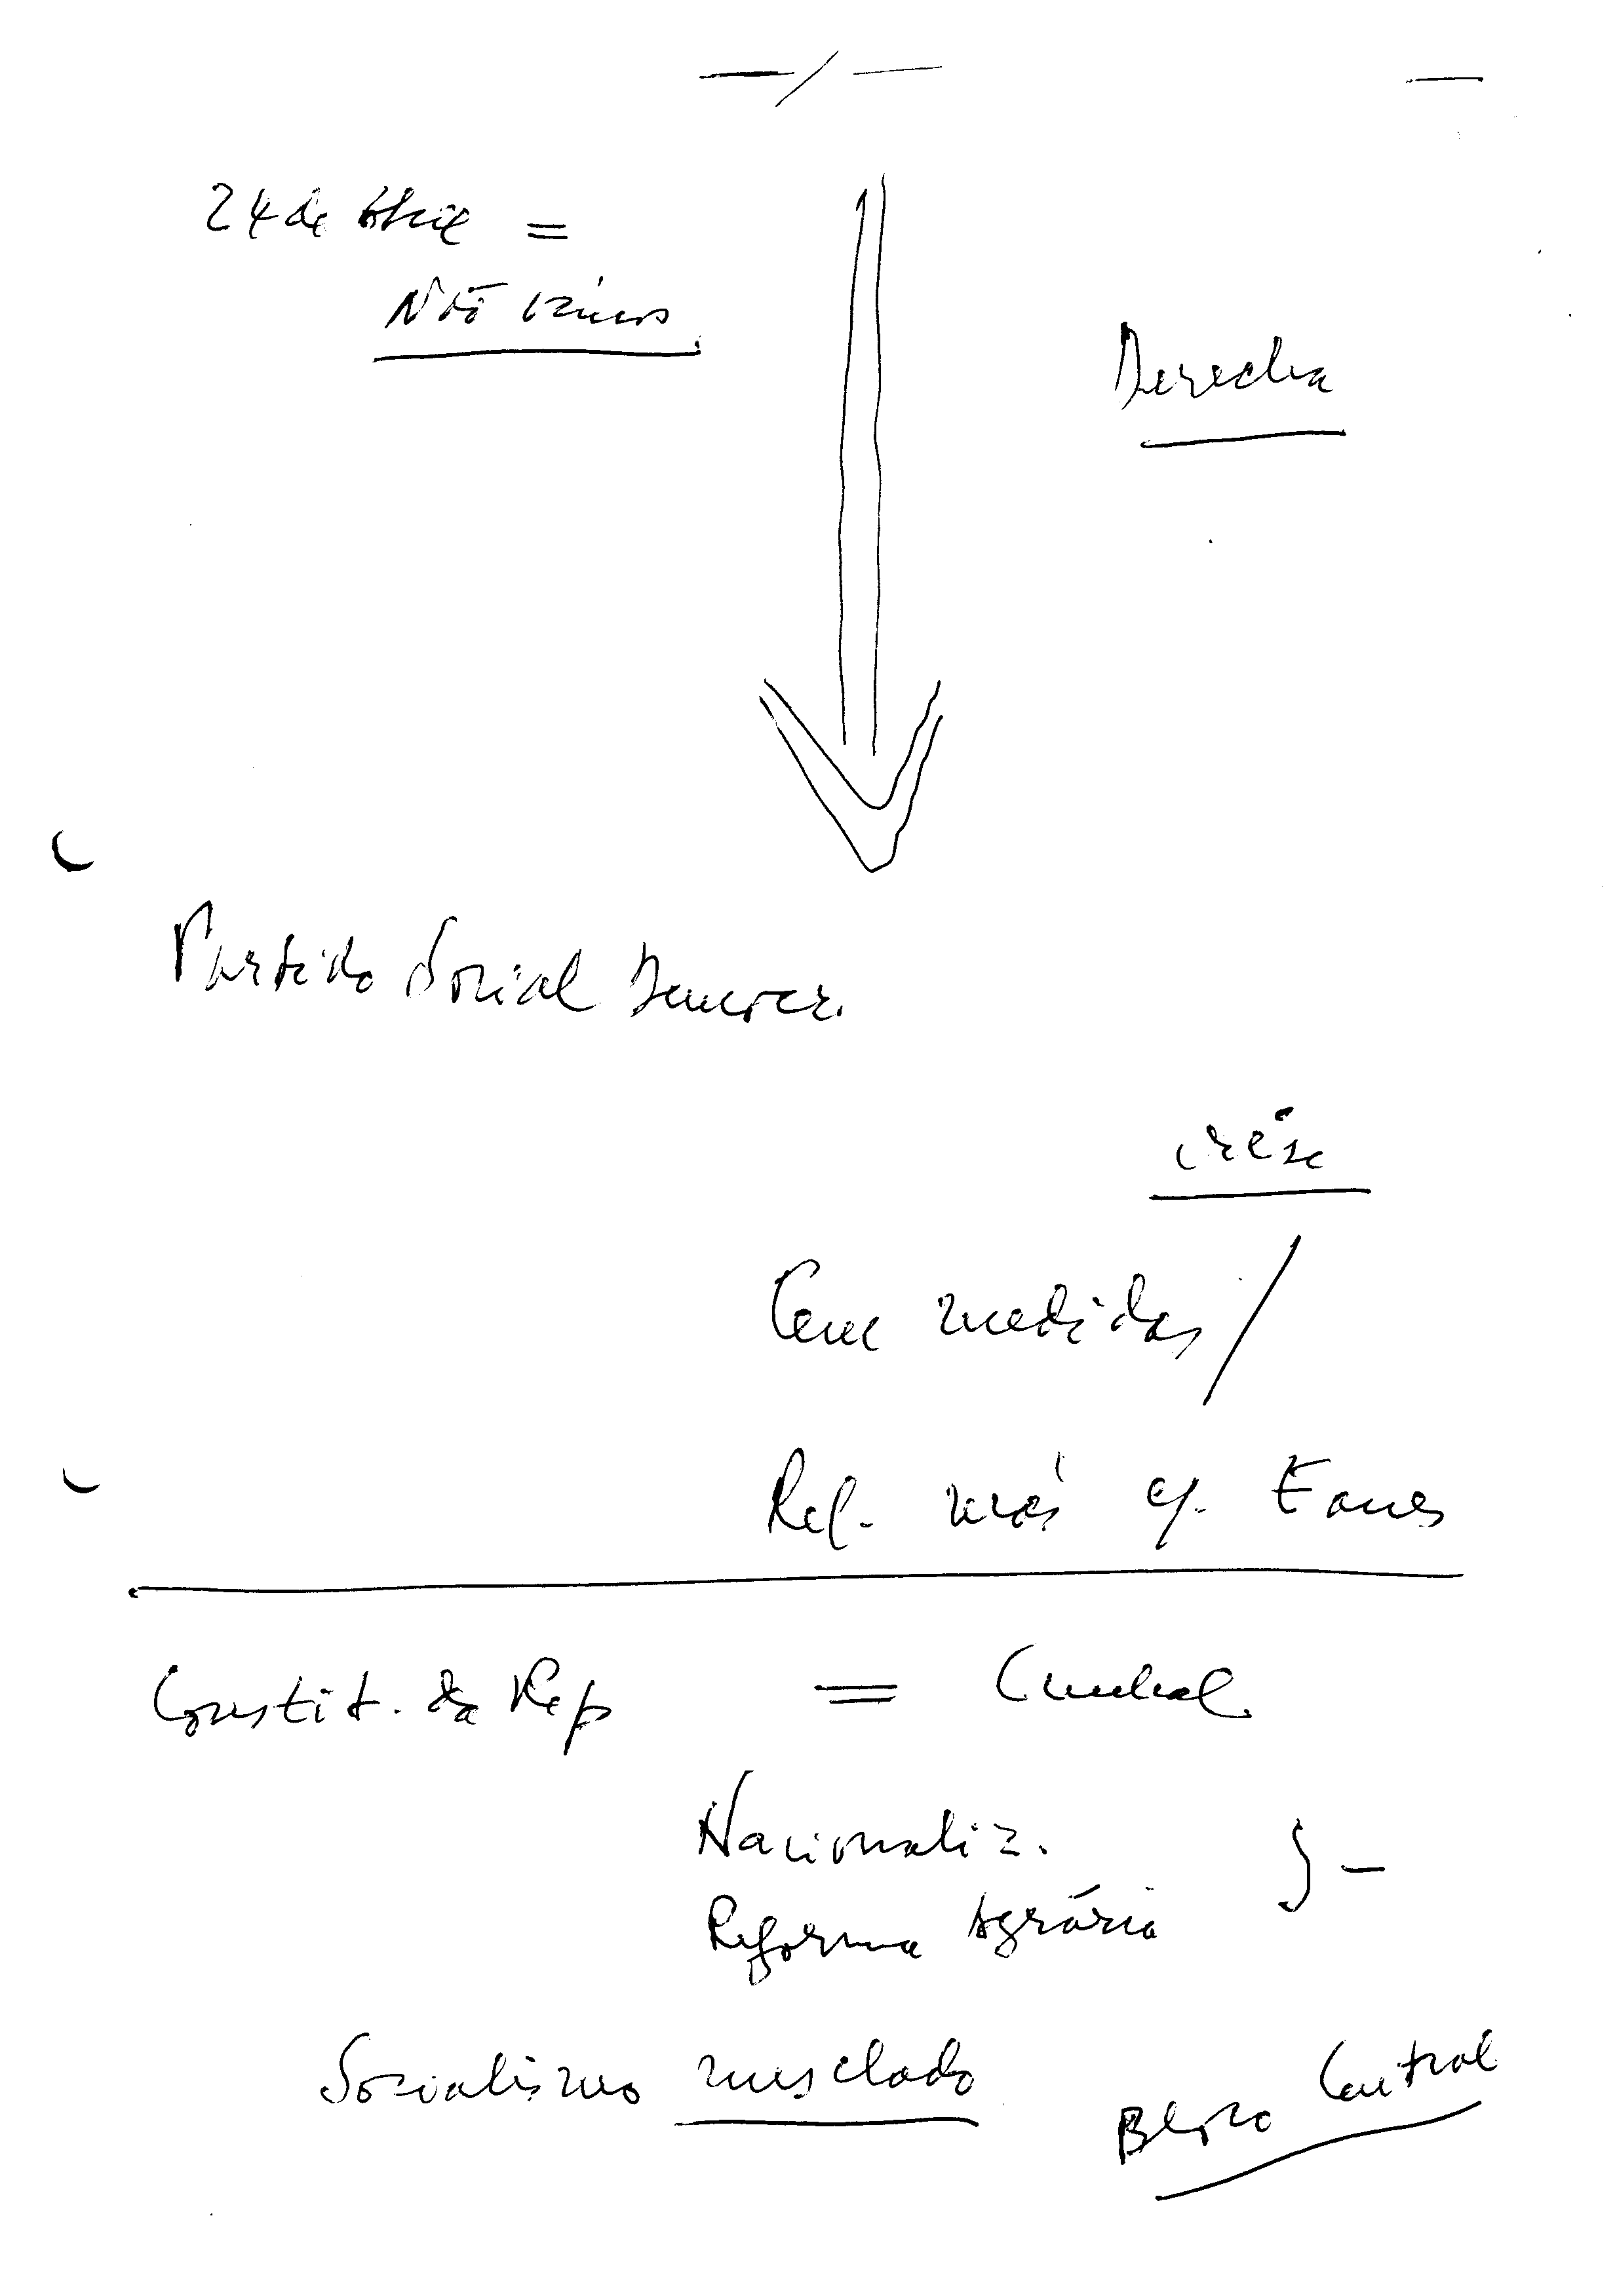 24 de Abril =
Não
Derecha
Partido Social Democr.
crise
Cem medidas /
Rel. más c/. Eanes
Constit. da Rep = Cunhal
Nacionaliz.
Reforma Agrária } -
Socialismo musclado
Bloco Central